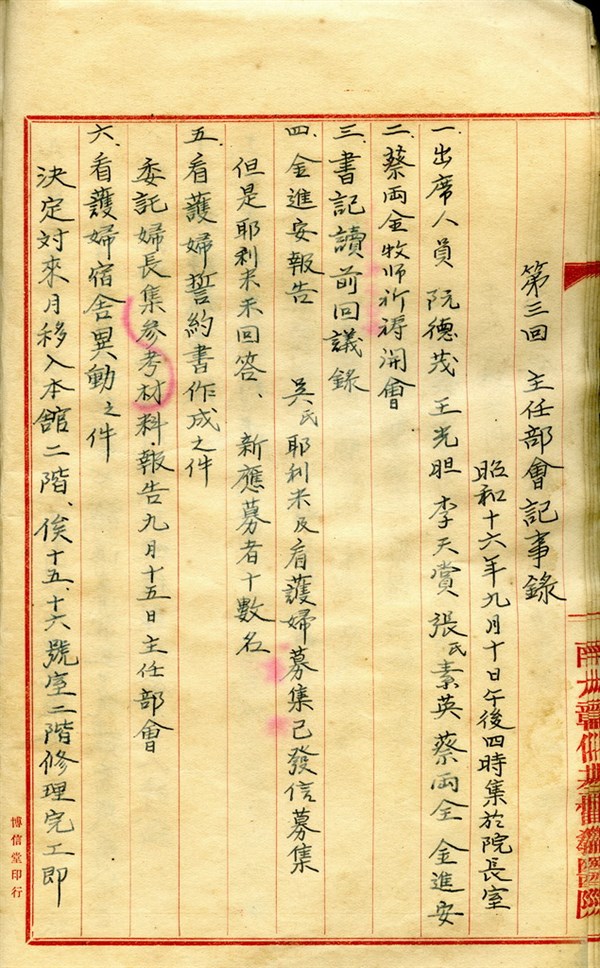 第三回 主任部會記事錄
昭和十六年九月十日午後四時集於院長室
一.出席人員 阮德茂 王光胆 李天賞 張氏素英 蔡両全 金進安
二.蔡両全牧师祈祷開會
三.書記讀前回議錄
四.金進安報告 吳氏耶利米及看護婦募集已發信募集
但是耶利米未回答、 新應募者十數名
五.看護婦誓約書作成之件
委託婦長集參考材料.報告九月十五日主任部會
六.看護婦宿舍異動之件
決定対來月移入本館二階、俟十五、十六號室二階修理完工即
博信堂印行